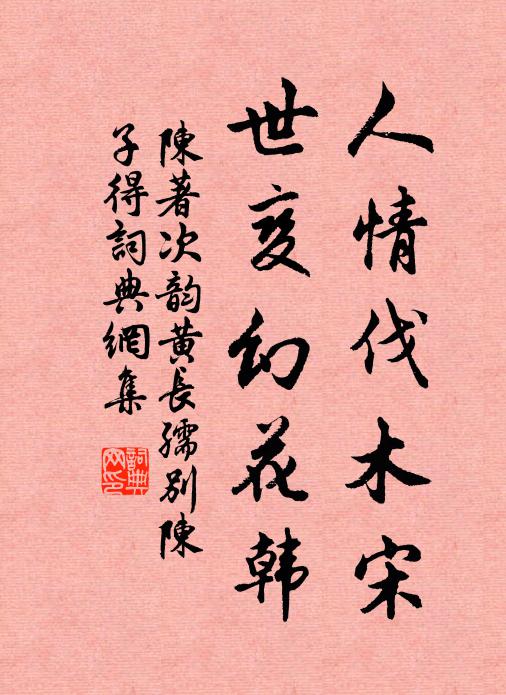 人情伐木宋
世变幻花韩
陳著次韵黄長孺别陳
子得詞典網集
詞典网印